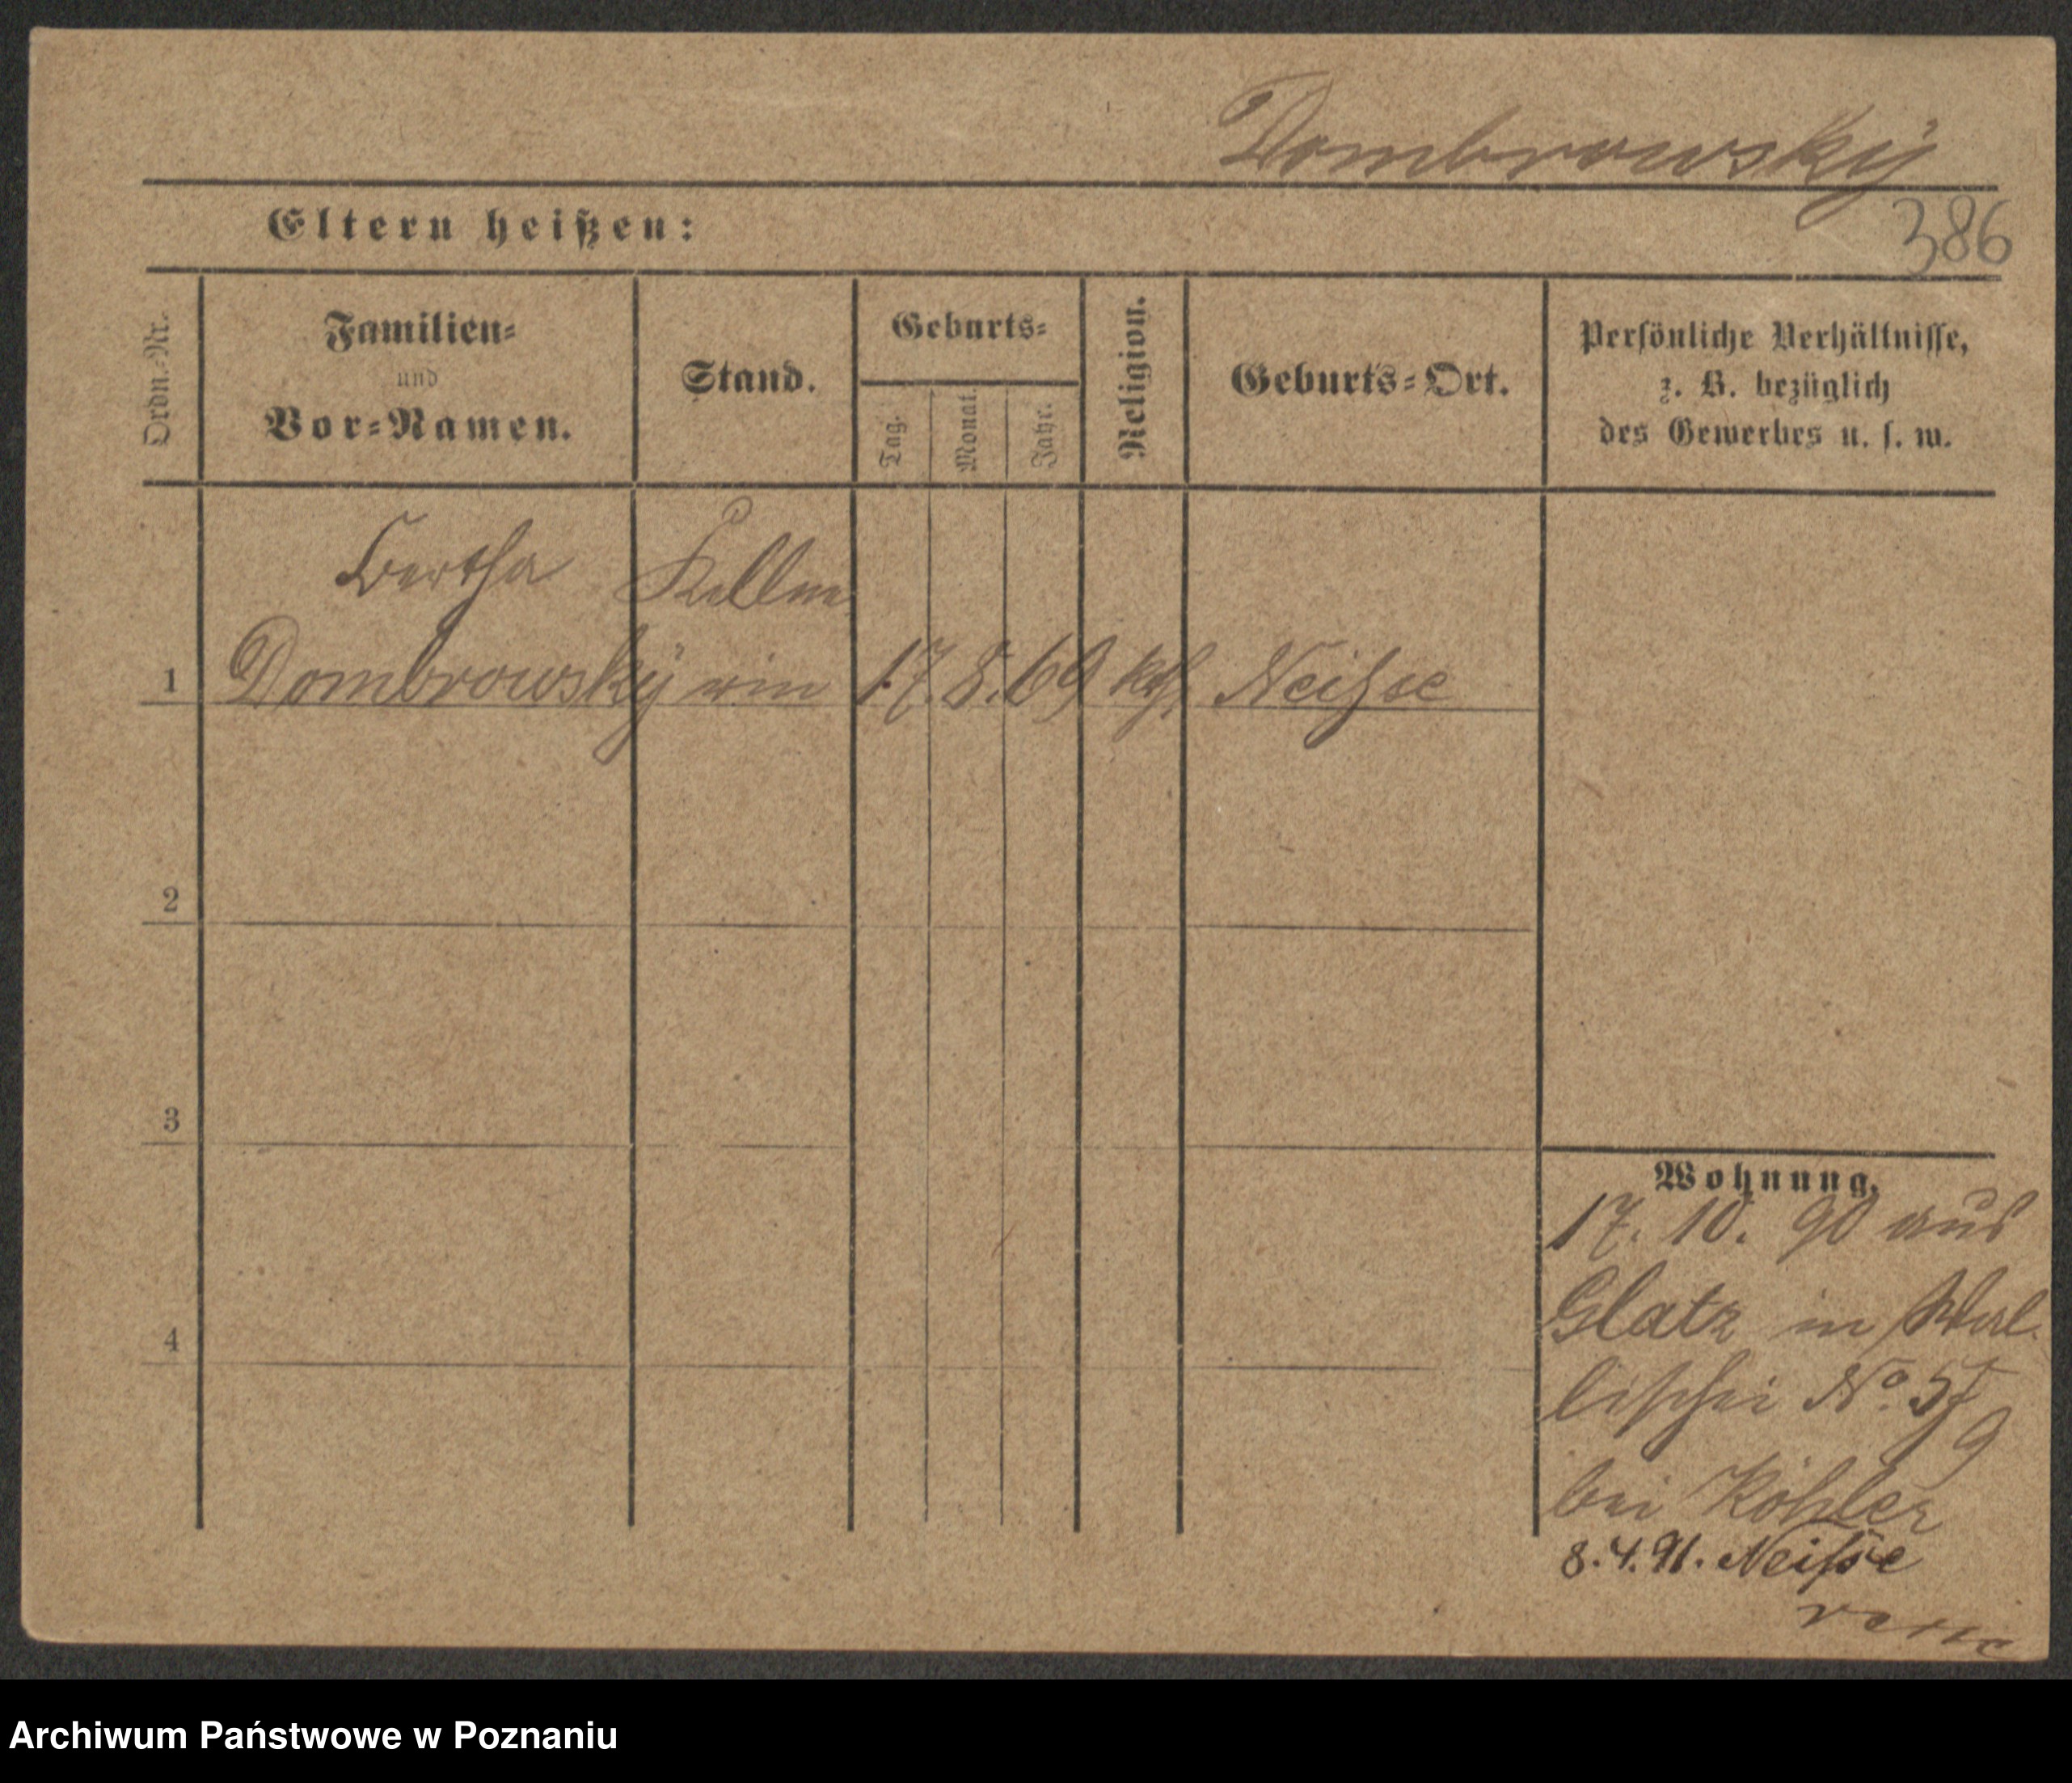 Dombrowsky
386
Eltern heißen:
Ordn.-Nr.
Familien-
und
Vor-Namen.
Stand.
Geburts-
Tag.
Monat.
Jahr.
Religion.
Geburts-Ort.
Persönliche Verhältnisse,
z. B. bezüglich
des Gewerbes u. s. w.
Bertha Kellne
1 Dombrowsky rin 17. 8. 69 kth. Neiße
2
3
4
Wohnung.
17. 10. 90 aus
Glatz in Wal-
lischei No.
bei Köhler
8. 4. 91. Neisse
Archiwum Państwowe w Poznaniu